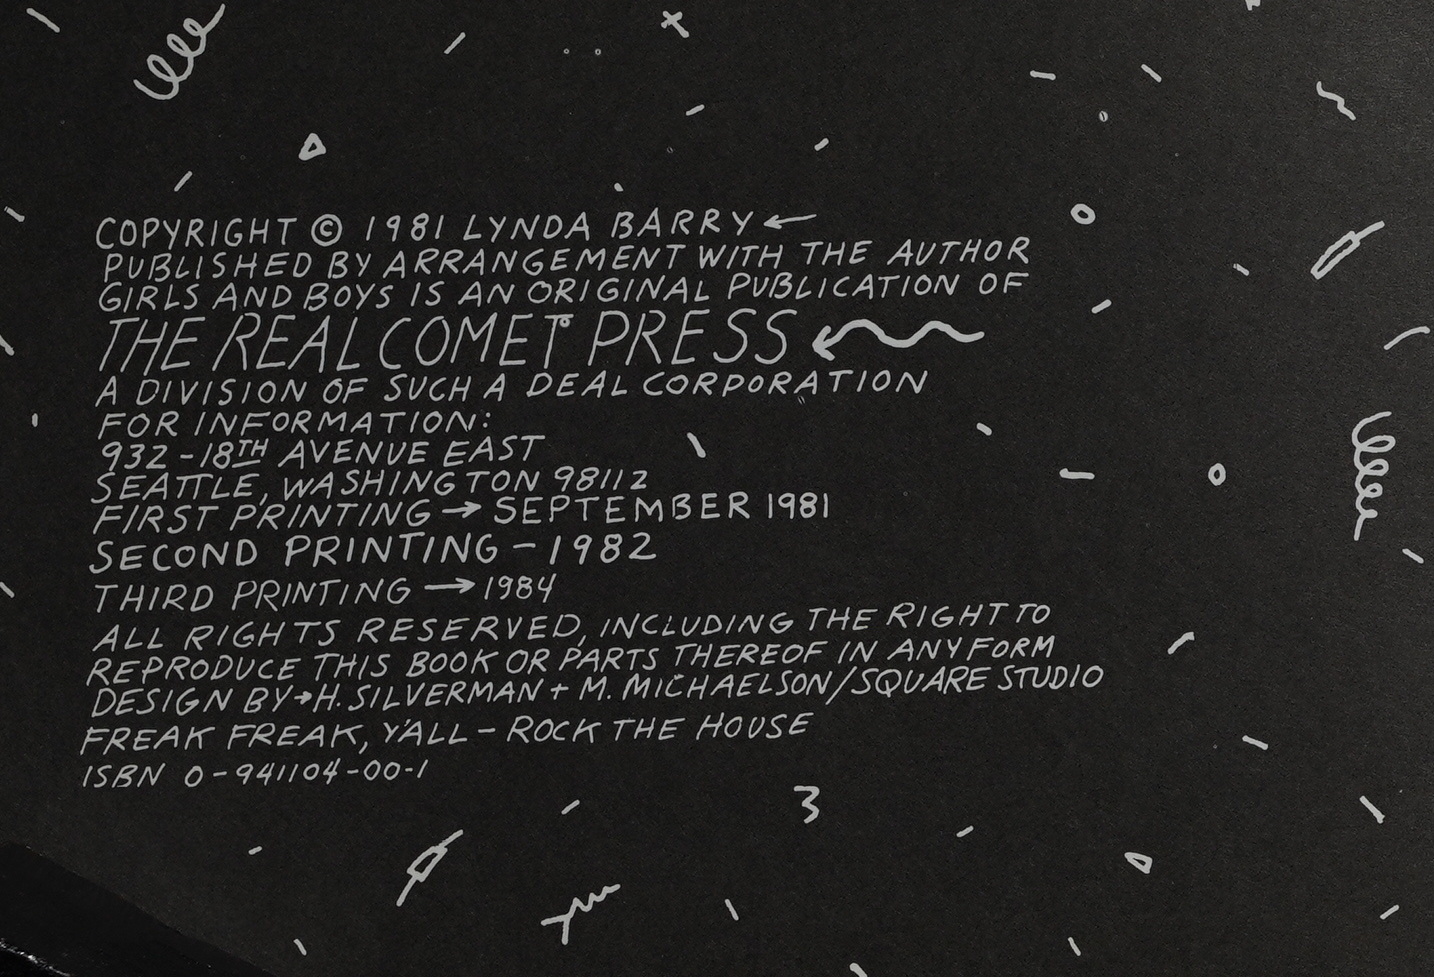 COPYRIGHT © 1981 LYNDA BARRY ←
PUBLISHED BY ARRANGEMENT WITH THE AUTHOR
GIRLS AND BOYS IS AN ORIGINAL PUBLICATION OF
THE REAL COMET PRESS ←
A DIVISION OF SUCH A DEAL CORPORATION
FOR INFORMATION:
932-18TH AVENUE EAST
SEATTLE, WASHINGTON 98112
FIRST PRINTING → SEPTEMBER 1981
SECOND PRINTING - 1982
THIRD PRINTING → 1984
ALL RIGHTS RESERVED, INCLUDING THE RIGHT TO
REPRODUCE THIS BOOK OR PARTS THEREOF IN ANY FORM
DESIGN BY → H. SILVERMAN + M. MICHAELSON/SQUARE STUDIO
FREAK FREAK, Y'ALL - ROCK THE HOUSE
ISBN 0-941104-00-1